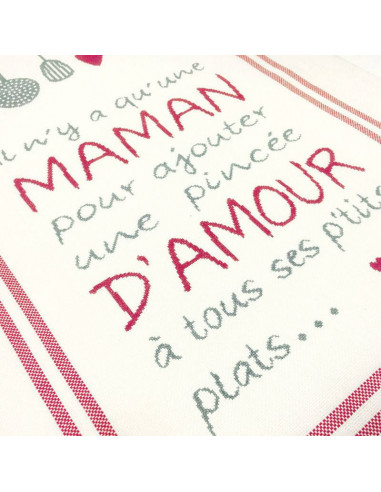 il n'y a qu'une
MAMAN
pour ajouter
une pincée
D'AMOUR
à tous ses p'tits
plats...